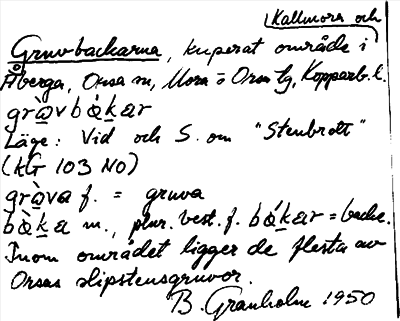 Kallmora och
Gruvbackarna, kuperat område i
Åberga, Orsa sn, Mora o Orsa tg, Kopparb. l.
grò̱vbák̠ar
Läge: Vid och S. om "Stenbrott"
(KG 103 NO)
grò̱va f. = gruva
bàk̠a m., plur. best. f. bák̠ar = backe.
Inom området ligger de flesta av
Orsas slipstensgruvor.
B. Granholm 1950